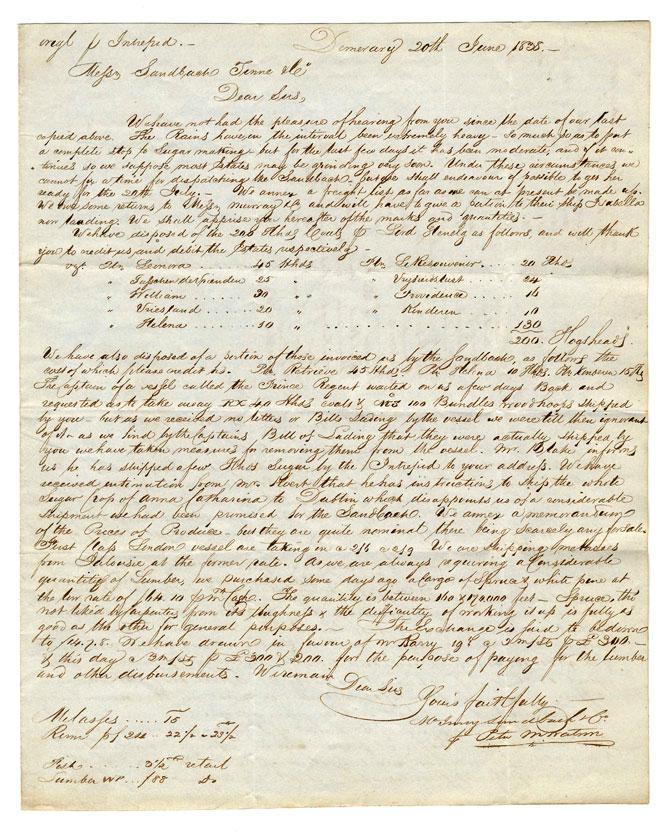 origl p Intrepid. — Demerary 20th June 1838. —
Messrs Sandbach Tinne & Co
Dear Sirs,
We have not had the pleasure of hearing from you since the date of our last
copied above. The Rains have, in the interval been extremely heavy — so much so as to put
a complete stop to Sugar making but for the last few days it has been moderate, and if it con-
tinues so we suppose most Estates may be grinding very soon. Under these circumstances we
cannot for a time for dispatching the Sandbach, but we shall endeavour if possible to get her
ready for the 20th July. — We annex a freight list as far as one can at present be made up.
We owe some returns to Messrs Murray & Co and will have to give a portion to their Ship Isabella
now loading. We shall apprise you hereafter of the marks and quantities. —
We have disposed of the 200 Hhds Coals p Lord Glenelg as follows, and will thank
you to credit us, and debit the Estates respectively —
vizt Pln Leonora ..... 45 Hhds Pln L. Resouvenir .... 20 Hhds
" 25 " " Vryheidslust ..... 24
" William ....... 30 " " Providence .... 16
" Vriesland ...... 20 " " Kinderen .... 10
" Helena ....... 10 " ........ 130
200. Hogsheads.
We have also disposed of a portion of those invoiced us by the Sandbach, as follows the
cost of which please credit us. Pln Retrieve 45 Hhds. Pln Helena 10 Hhds. 15 Hhds
The Captain of a vessel called the Prince Regent waited on us a few days back and
requested us to take away 40 Hhds Coals & 100 Bundles woodhoops shipped
by you — but as we received no letters or Bills Lading by the vessel we were till then ignorant
of it — as we find by the Captains Bill of Lading that they were actually shipped by
you we have taken measures for removing them from the vessel. Mr. Blake informs
us he has shipped a few Hhds Sugar by the Intrepid to your address. We have
received intimation from Mr. that he has instructions to ship the whole
Sugar crop of Anna Catharina to Dublin which disappoints us of a considerable
shipment we had been promised for the Sandbach. We annex a memorandum
of the Prices of Produce, but they are quite nominal there being scarcely any for sale.
First Class London vessels are taking in @ 2/6 @ 2/9 We are shipping molasses
from at the former rate. As we are always requiring a considerable
quantity of Lumber, we purchased some days ago a Cargo of Spruce & white pine at
the low rate of f64.10 p M cash. The quantity is between 160 & 170,000 feet — Spruce, tho'
not liked by Carpenters from its toughness & the difficulty of working it up is fully as
good as the other for general purposes. — The Exchange is fixed to return
to 14.2.8. We have drawn in favour of Mr Barry 19th @ 3 m/st p £300. —
& this day @ 3m/st p £300 & 200. for the purpose of paying for the lumber
and other disbursements. We remain
Dear Sirs
Yours faithfully
McInroy Sandbach & Co.
p Peter
Molasses ..... 15
Rum p 22½ @ 23½
Fish ....... 3½ retail
Lumber WP ... f88 Do